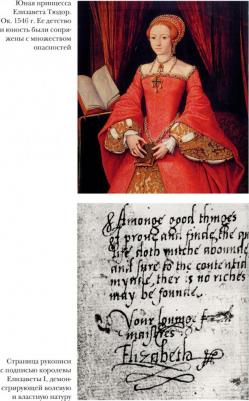 Юная принцесса
Елизавета Тюдор.
Ок. 1546 г. Ее детство
и юность были сопря-
жены с множеством
опасностей
& Amonge good thinges
I prove and finde, the quiet
life doth muche abounde
and sure to the contentid
mynde, ther is no riches
may be founde.
Your loving
maistres
Elizabeth
Страница рукописи
с подписью королевы
Елизаветы I, демон-
стрирующей волевую
и властную натуру